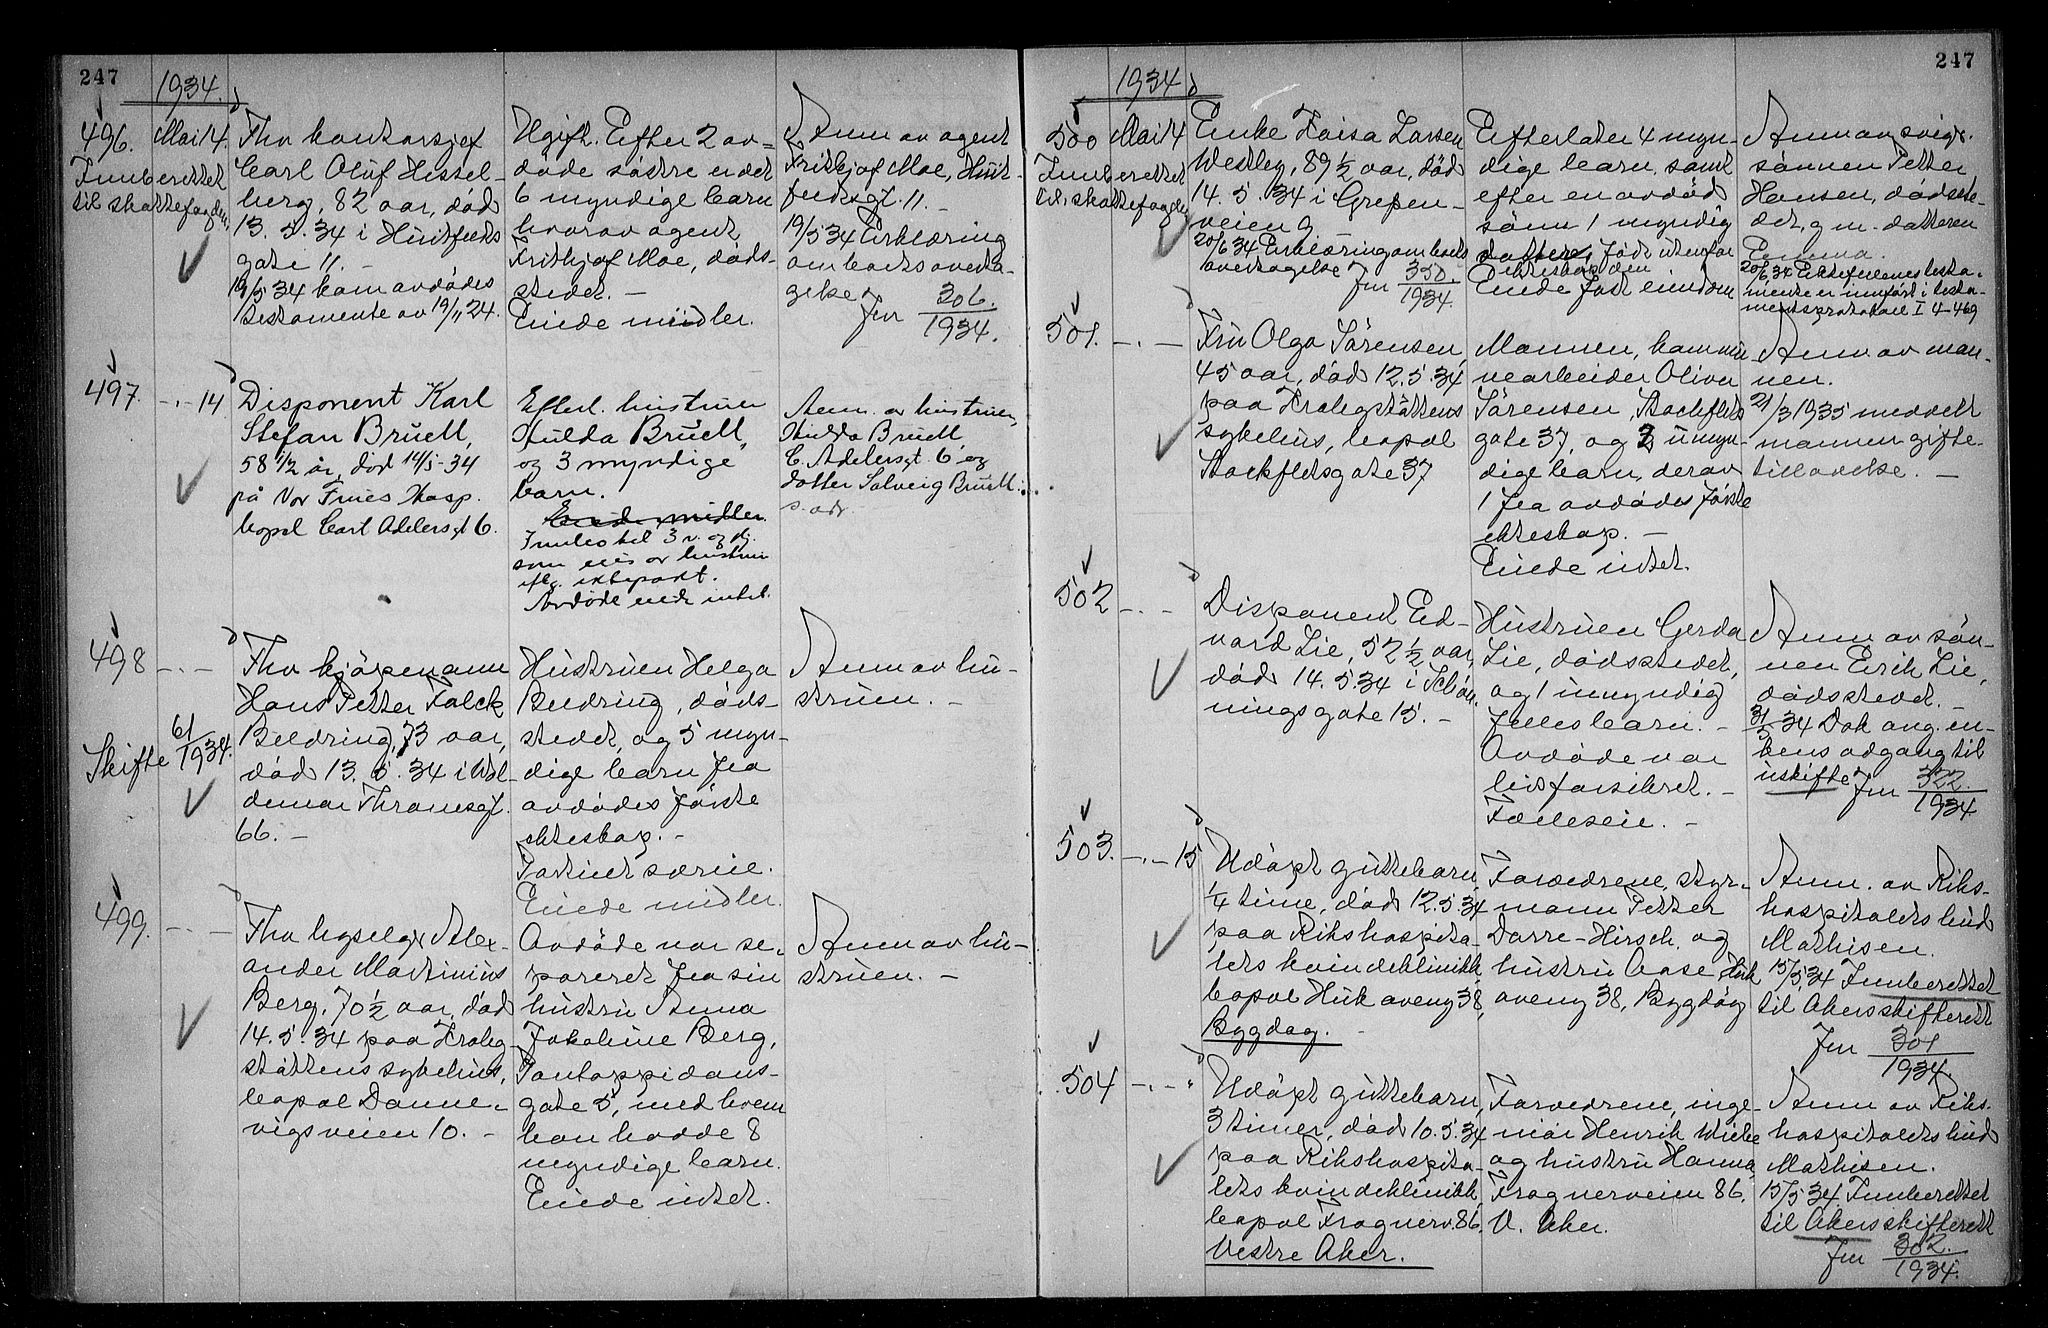 247
1934.
496.
Innberettet
til skattefogden,
Mai 14.
Fhv kontorsjef
Carl Oluf Hissel-
berg, 82 aar, død
13. 5. 34 i Huitfelts
gate 11. -
19/5 34 kom avdødes
testamente av 19/11 24.
Ugift. Efter 2 av-
døde søstre er det
6 myndige barn
hvorav agent
Fritkjof Moe, døds-
stedet. -
Eiede midler.
Anm av agent
Fritkjof Moe, Huit-
feldsgt. 11. -
19/5 34 Erklæring
om boets overta-
gelse
Jnr 306.
1934.
497.
-.- 14
Disponent Karl
Stefan Bruell,
58 1/2 år, død 14/5-34
på Vor Frues Hosp.
bopel Carl Adelersgt 6.
Efterl. hustruen
Hulda Bruell,
og 3 myndige
barn.
Eiede midler.
Innbo til 3 v. og kj.
som eies av hustruen
iflg. ektepakt.
Avdøde eiede intet.
Anm. av hustruen,
Hulda Bruell,
C. Adelersgt. 6 og
datter Solveig Bruell.
s. adr.
498
-.-
Skifte 61/1934.
Fhv kjøpmann
Hans Petter Falck
Beedring, 73 aar,
død 13. 5. 34 i Wal-
demar Thranesgt.
66. -
Hustruen Helga
Beedring, døds-
stedet, og 5 myn-
dige barn fra
avdødes første
ekteskap. -
Fortiet særeie.
Eiede midler.
Anm av hu-
struen. -
499.
-.-
Fhv byselger Alex-
ander Martinius
Berg, 70 1/2 aar, død
14. 5. 34 paa Krohg-
støttens sykehus,
bopel Danne-
vigsveien 10. -
Avdøde var se-
parert fra sin
hustru Anna
Jakobine Berg,
Pontoppidans-
gate 5, med hvem
han hadde 8
myndige barn.
Eiede intet.
Anm av hu-
struen. -
247
1934
500
Innberettet
til skattefogden
Mai 14
Enke Kaisa Larsen
Westley, 89 1/2 aar, død
14. 5. 34 i Grefsen-
veien 9. -
20/6 34 Erklæring om boets
overtagelse Jnr 350.
1934.
Efterlater 4 myn-
dige barn, samt
efter en avdød
sønn 1 myndig
datter, født utenfor
ekteskap den
Eiede fast eiendom
Anm av svige-
sønnen Petter
Hansen, dødste-
det, g m. datteren
20/6 34 Ektefellenes testa-
mente er innført i testa-
mentsprotokoll I 4-469
501.
-.-
Fru Olga Sørensen,
45 aar, død 12. 5. 34,
paa Krohgstøttens
sykehus, bopel
Stockfletsgate 37
Mannen, kommu-
nearbeider Oliver
Sørensen, Stockflets
gate 37, og 2 umyn-
dige barn, derav
1 fra avdødes første
ekteskap. -
Eiede intet.
Anm av man-
nen.
21/3 1935 meddelt
mannen gifte-
tillatelse. -
502
-.-
Disponent Ed-
vard Lie, 52 1/2 aar,
død 14. 5. 34 i Schøn-
ningsgate 15. -
Hustruen Gerda
Lie, dødsstedet,
og 1 umyndig
felles barn. -
Avdøde var
livsforsikret. -
Felleseie. -
Anm av søn-
nen Erik Lie,
dødsstedet. -
31/5 34 Dok ang. en-
kens adgang til
uskifte Jnr 322.
1934
503.
-.- 15
Udøpt guttebarn,
1/4 time, død 12. 5. 34
paa Rikshospita-
lets kvindeklinikk,
bopel Huk aveny 38,
Bygdøy. -
Forældrene, styr-
mann Petter
Darre-Hirsch. og
hustru Aase, Huk
aveny 38, Bygdøy
Anm. av Riks-
hospitalets bud
Mathisen.
15/5 34 Innberettet
til Akers skifterett
Jnr 301
1934.
504
-.- "
Udøpt guttebarn,
3 timer, død 10. 5. 34
paa Rikshospita-
lets kvindeklinikk
bopel Frognerv. 86,
Vestre Aker.
Forældrene, inge-
niør Henrik Wiebe
og hustru Hanna
Frognerveien 86,
V. Aker.
Anm av Riks-
hospitalets bud
Mathisen.
15/5 34 Innberettet
til Akers skifterett
Jnr 302.
1934.